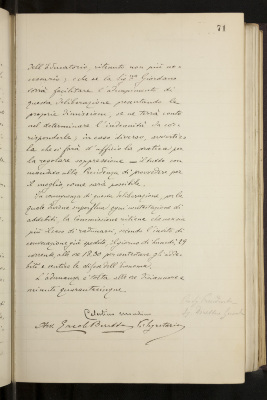 71
dell'Educatorio, ritenuto non più ne-
cessario; che se la Sig.ra Giordano
vorrà facilitare l'adempimento di
questa deliberazione presentando le
proprie dimissioni, se ne terrà conto
nel determinare l'indennità da cor-
risponderle; in caso diverso, avverti-
la che si farà d'ufficio la pratica per
la regolare soppressione - il tutto con
mandato alla Presidenza di provvedere per
il meglio come sarà possibile.
In conseguenza di questa deliberazione, per la
quale si rende superflua ogni contestazione di
addebiti, la Commissione ritiene che non sia
più il caso di radunarsi, come da invito di
convocazione già spedito, il giorno di lunedì 19
corrente, alle ore 18.30 per contestare gli adde-
biti e sentire le difese dell'
L'adunanza è tolta alle ore
minuti quarantacinque.
Il Segretario